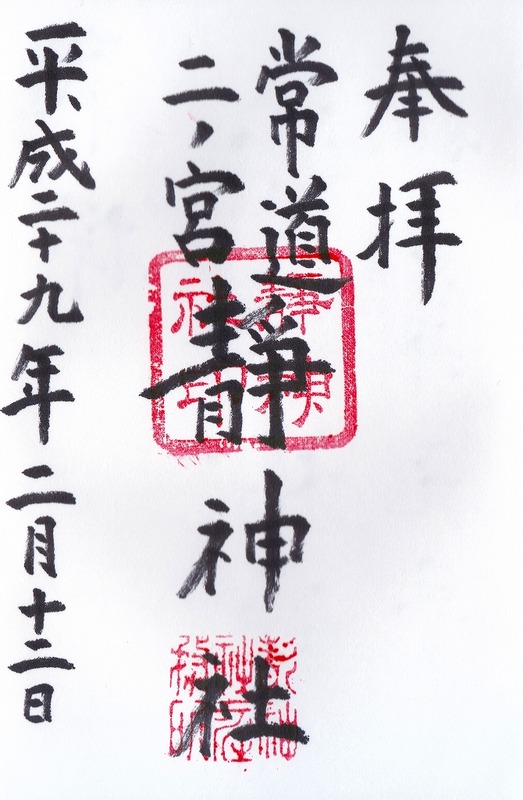 奉拝
常道
二ノ宮
靜神社
平成二十九年二月十二日
靜神
社印